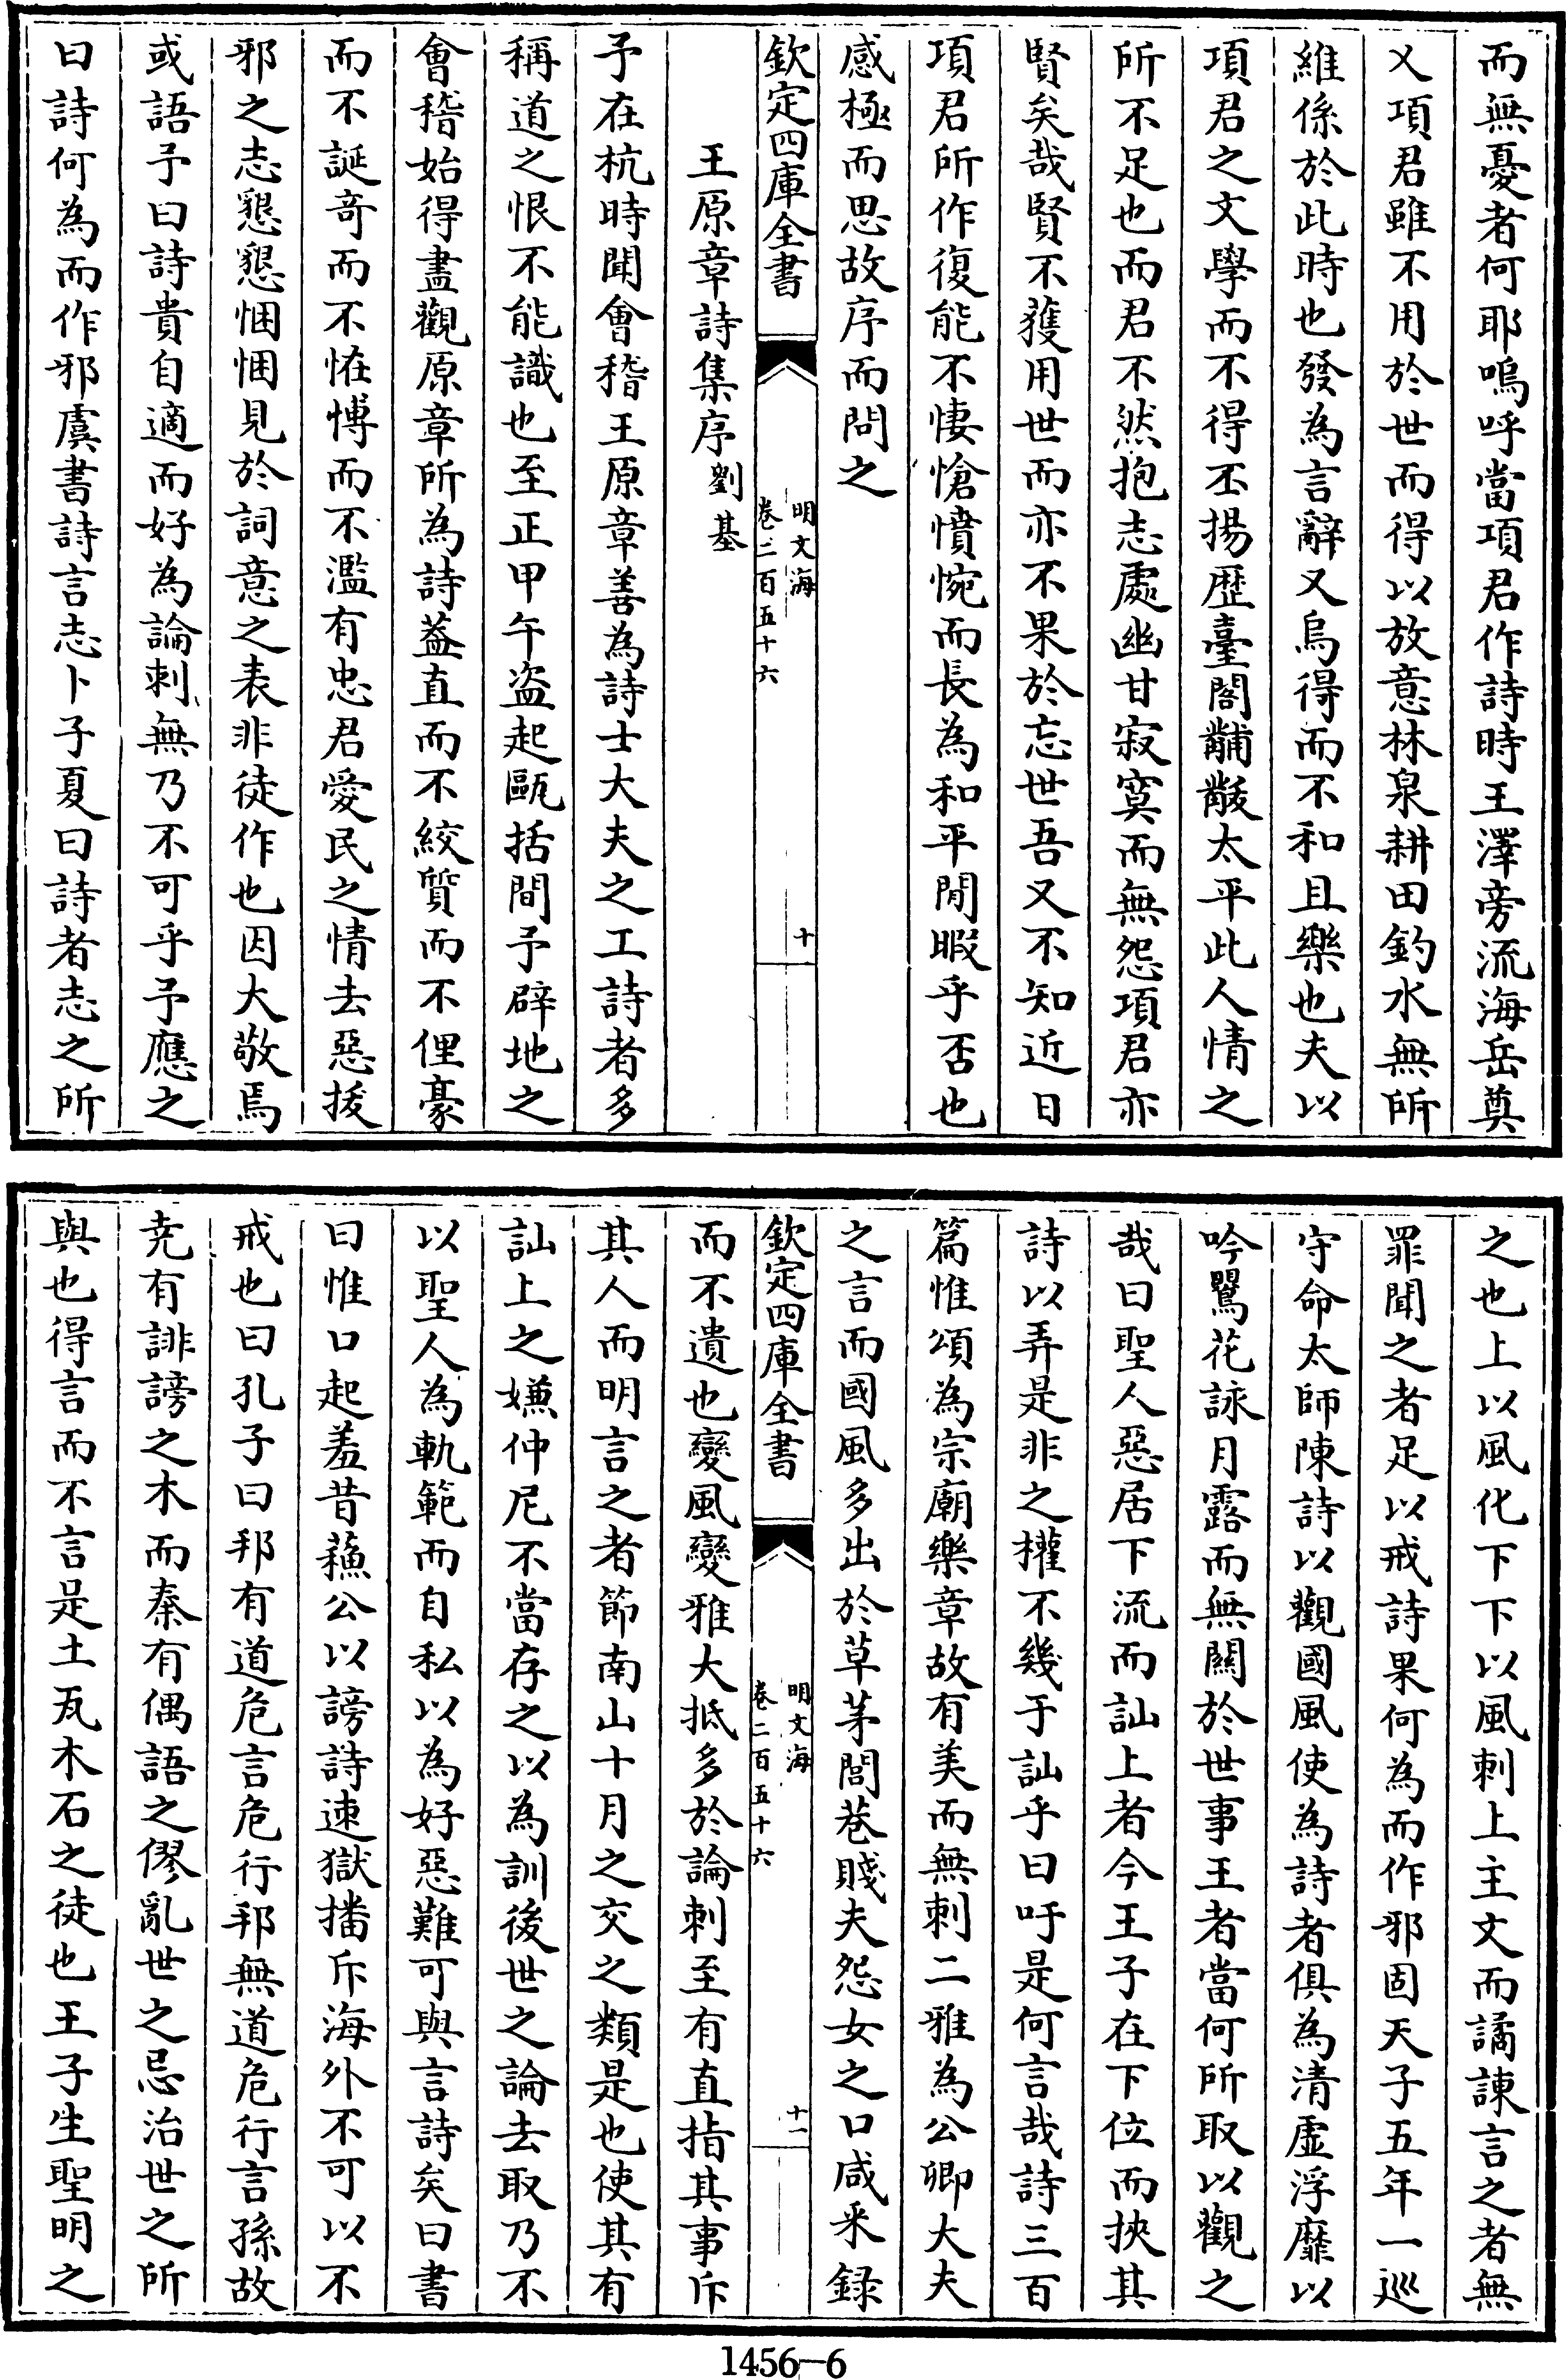 而無憂者何耶嗚呼當項君作詩時王澤旁流海岳奠
乂項君雖不用於世而得以放意林泉耕田釣水無所
維係於此時也發為言辭又烏得而不和且樂也夫以
項君之文學而不得丕揚歴臺閣黼黻太平此人情之
所不足也而君不然抱志處幽甘寂寞而無怨項君亦
賢矣哉賢不獲用世而亦不果於忘世吾又不知近日
項君所作復能不悽愴憤惋而長為和平閒暇乎否也
感極而思故序而問之
欽定四庫全書
明文海
卷二百五十六
十
王原章詩集序劉基
予在杭時聞會稽王原章善為詩士大夫之工詩者多
稱道之恨不能識也至正甲午盜起甌括間予辟地之
會稽始得盡觀原章所為詩葢直而不絞質而不俚豪
而不誕奇而不怪博而不濫有忠君愛民之情去惡拔
邪之志懇懇悃悃見於詞意之表非徒作也因大敬焉
或語予曰詩貴自適而好為論刺無乃不可乎予應之
曰詩何為而作邪虞書詩言志卜子夏曰詩者志之所
之也上以風化下下以風刺上主文而譎諫言之者無
罪聞之者足以戒詩果何為而作邪固天子五年一廵
守命太師陳詩以觀國風使為詩者俱為清虛浮靡以
吟鶯花詠月露而無關於世事王者當何所取以觀之
哉曰聖人惡居下流而訕上者今王子在下位而挾其
詩以弄是非之權不幾于訕乎曰吁是何言哉詩三百
篇惟頌為宗廟樂章故有美而無刺二雅為公卿大夫
之言而國風多出於草茅閭巷賤夫怨女之口咸釆録
欽定四庫全書
明文海
卷二百五十六
十一
而不遺也變風變雅大抵多於論刺至有直指其事斥
其人而明言之者節南山十月之交之類是也使其有
訕上之嫌仲尼不當存之以為訓後世之論去取乃不
以聖人為軌範而自私以為好惡難可與言詩矣曰書
曰惟口起羞昔蘓公以謗詩速獄播斥海外不可以不
戒也曰孔子曰邦有道危言危行邦無道危行言孫故
堯有誹謗之木而秦有偶語之僇亂世之忌治世之所
與也得言而不言是土瓦木石之徒也王子生聖明之
1456—6